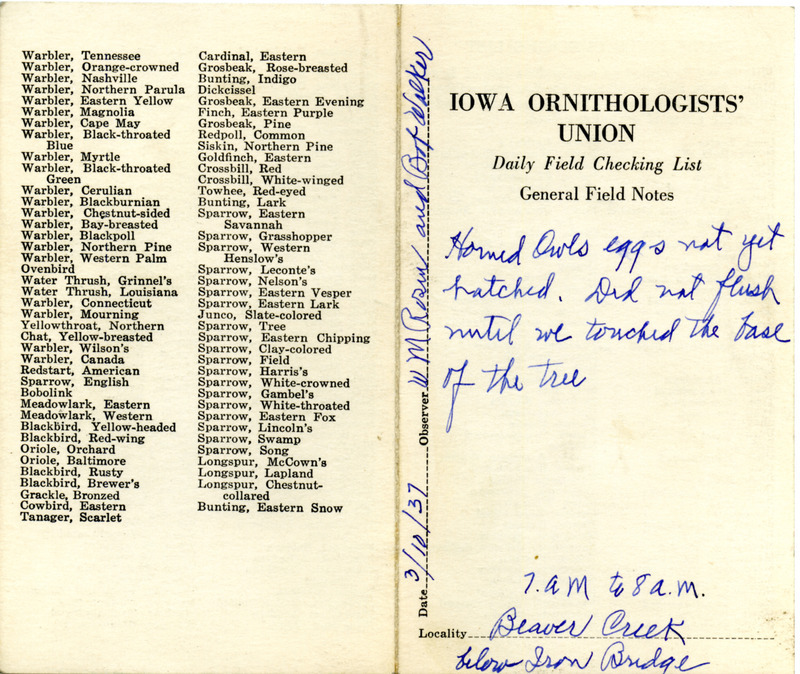 Warbler, Tennessee
Warbler, Orange-crowned
Warbler, Nashville
Warbler, Northern Parula
Warbler, Eastern Yellow
Warbler, Magnolia
Warbler, Cape May
Warbler, Black-throated
Blue
Warbler, Myrtle
Warbler, Black-throated
Green
Warbler, Cerulian
Warbler, Blackburnian
Warbler, Chestnut-sided
Warbler, Bay-breasted
Warbler, Blackpoll
Warbler, Northern Pine
Warbler, Western Palm
Ovenbird
Water Thrush, Grinnel's
Water Thrush, Louisiana
Warbler, Connecticut
Warbler, Mourning
Yellowthroat, Northern
Chat, Yellow-breasted
Warbler, Wilson's
Warbler, Canada
Redstart, American
Sparrow, English
Bobolink
Meadowlark, Eastern
Meadowlark, Western
Blackbird, Yellow-headed
Blackbird, Red-wing
Oriole, Orchard
Oriole, Baltimore
Blackbird, Rusty
Blackbird, Brewer's
Grackle, Bronzed
Cowbird, Eastern
Tanager, Scarlet
Cardinal, Eastern
Grosbeak, Rose-breasted
Bunting, Indigo
Dickcissel
Grosbeak, Eastern Evening
Finch, Eastern Purple
Grosbeak, Pine
Redpoll, Common
Siskin, Northern Pine
Goldfinch, Eastern
Crossbill, Red
Crossbill, White-winged
Towhee, Red-eyed
Bunting, Lark
Sparrow, Eastern
Savannah
Sparrow, Grasshopper
Sparrow, Western
Henslow's
Sparrow, Leconte's
Sparrow, Nelson's
Sparrow, Eastern Vesper
Sparrow, Eastern Lark
Junco, Slate-colored
Sparrow, Tree
Sparrow, Eastern Chipping
Sparrow, Clay-colored
Sparrow, Field
Sparrow, Harris's
Sparrow, White-crowned
Sparrow, Gambel's
Sparrow, White-throated
Sparrow, Eastern Fox
Sparrow, Lincoln's
Sparrow, Swamp
Sparrow, Song
Longspur, McCown's
Longspur, Lapland
Longspur, Chestnut-
collared
Bunting, Eastern Snow
Date 3/10/37 Observer W M Rosen and Bob Walker
IOWA ORNITHOLOGISTS'
UNION
Daily Field Checking List
General Field Notes
Horned Owls eggs not yet
hatched. Did not flush
until we touched the base
of the tree
7. a M to 8 a.m.
Locality Beaver Creek
below Iron Bridge